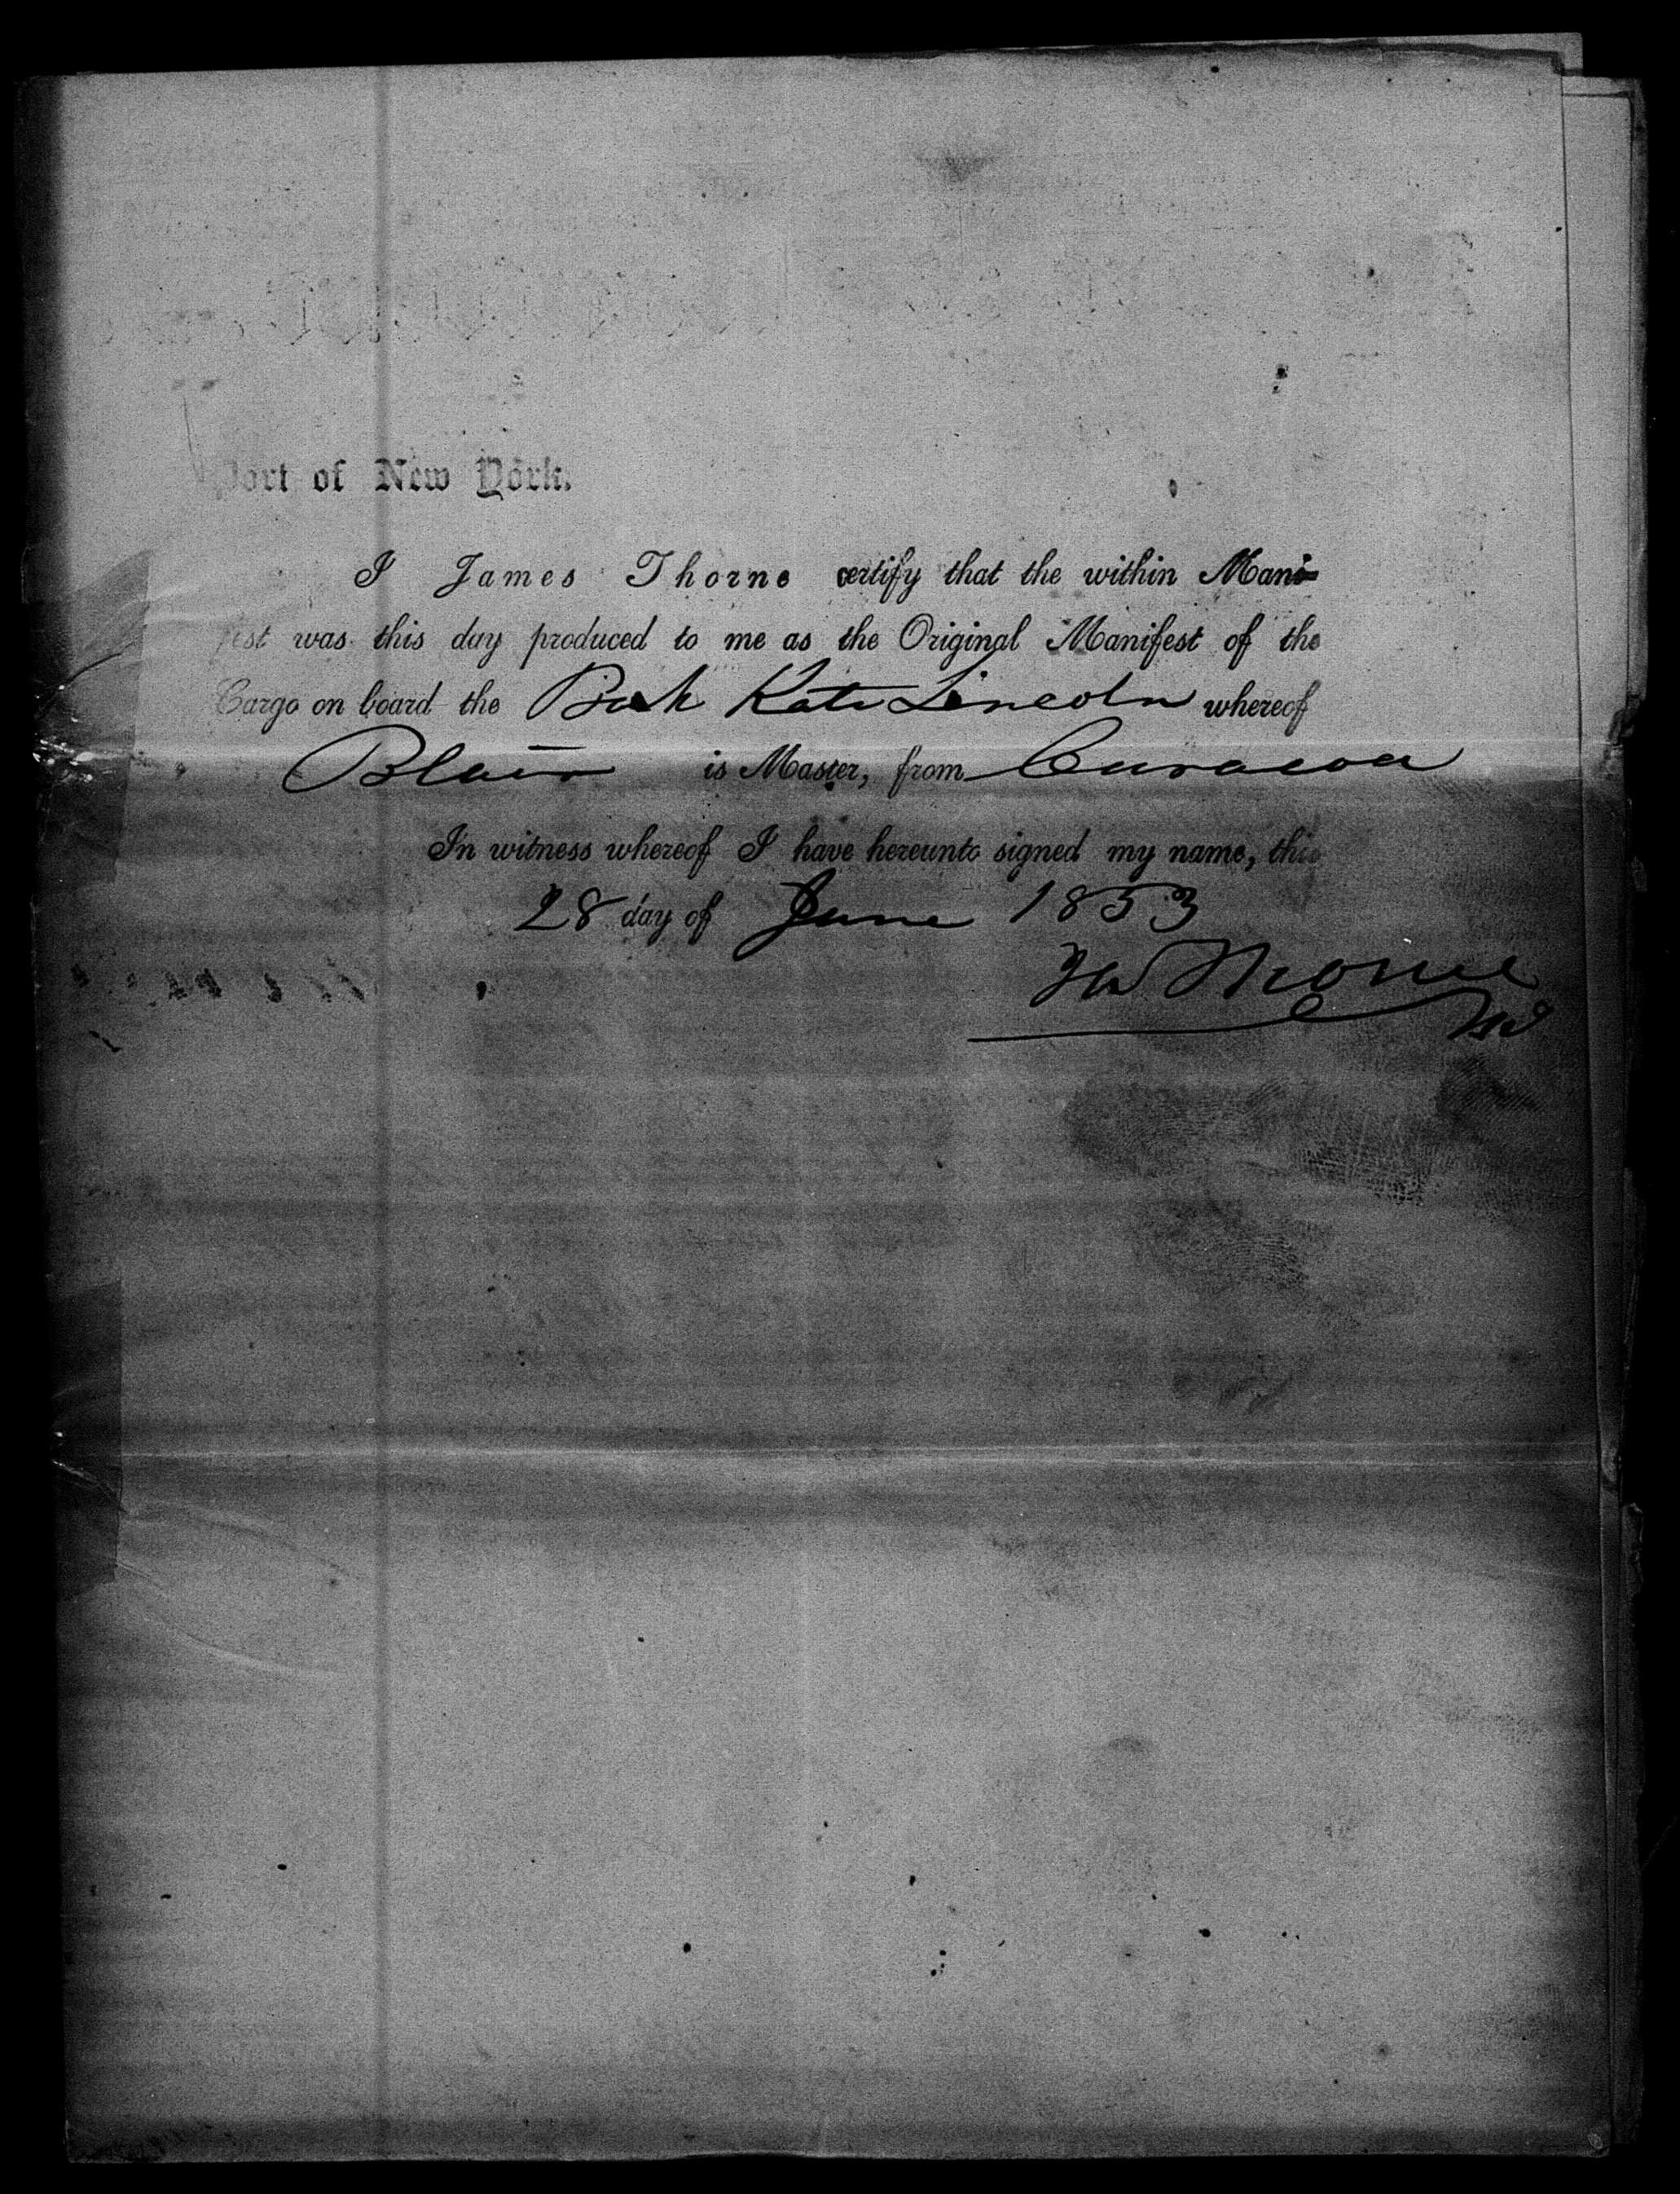 Port of New York.
I James Thorne certify that the within Mani=
fest was this day produced to me as the Original Manifest of the
Cargo on board the Bark Kate Lincoln whereof
Blair is Master, from Curacoa
In witness whereof I have hereunto signed my name, this
28 day of June 1853
Thorne